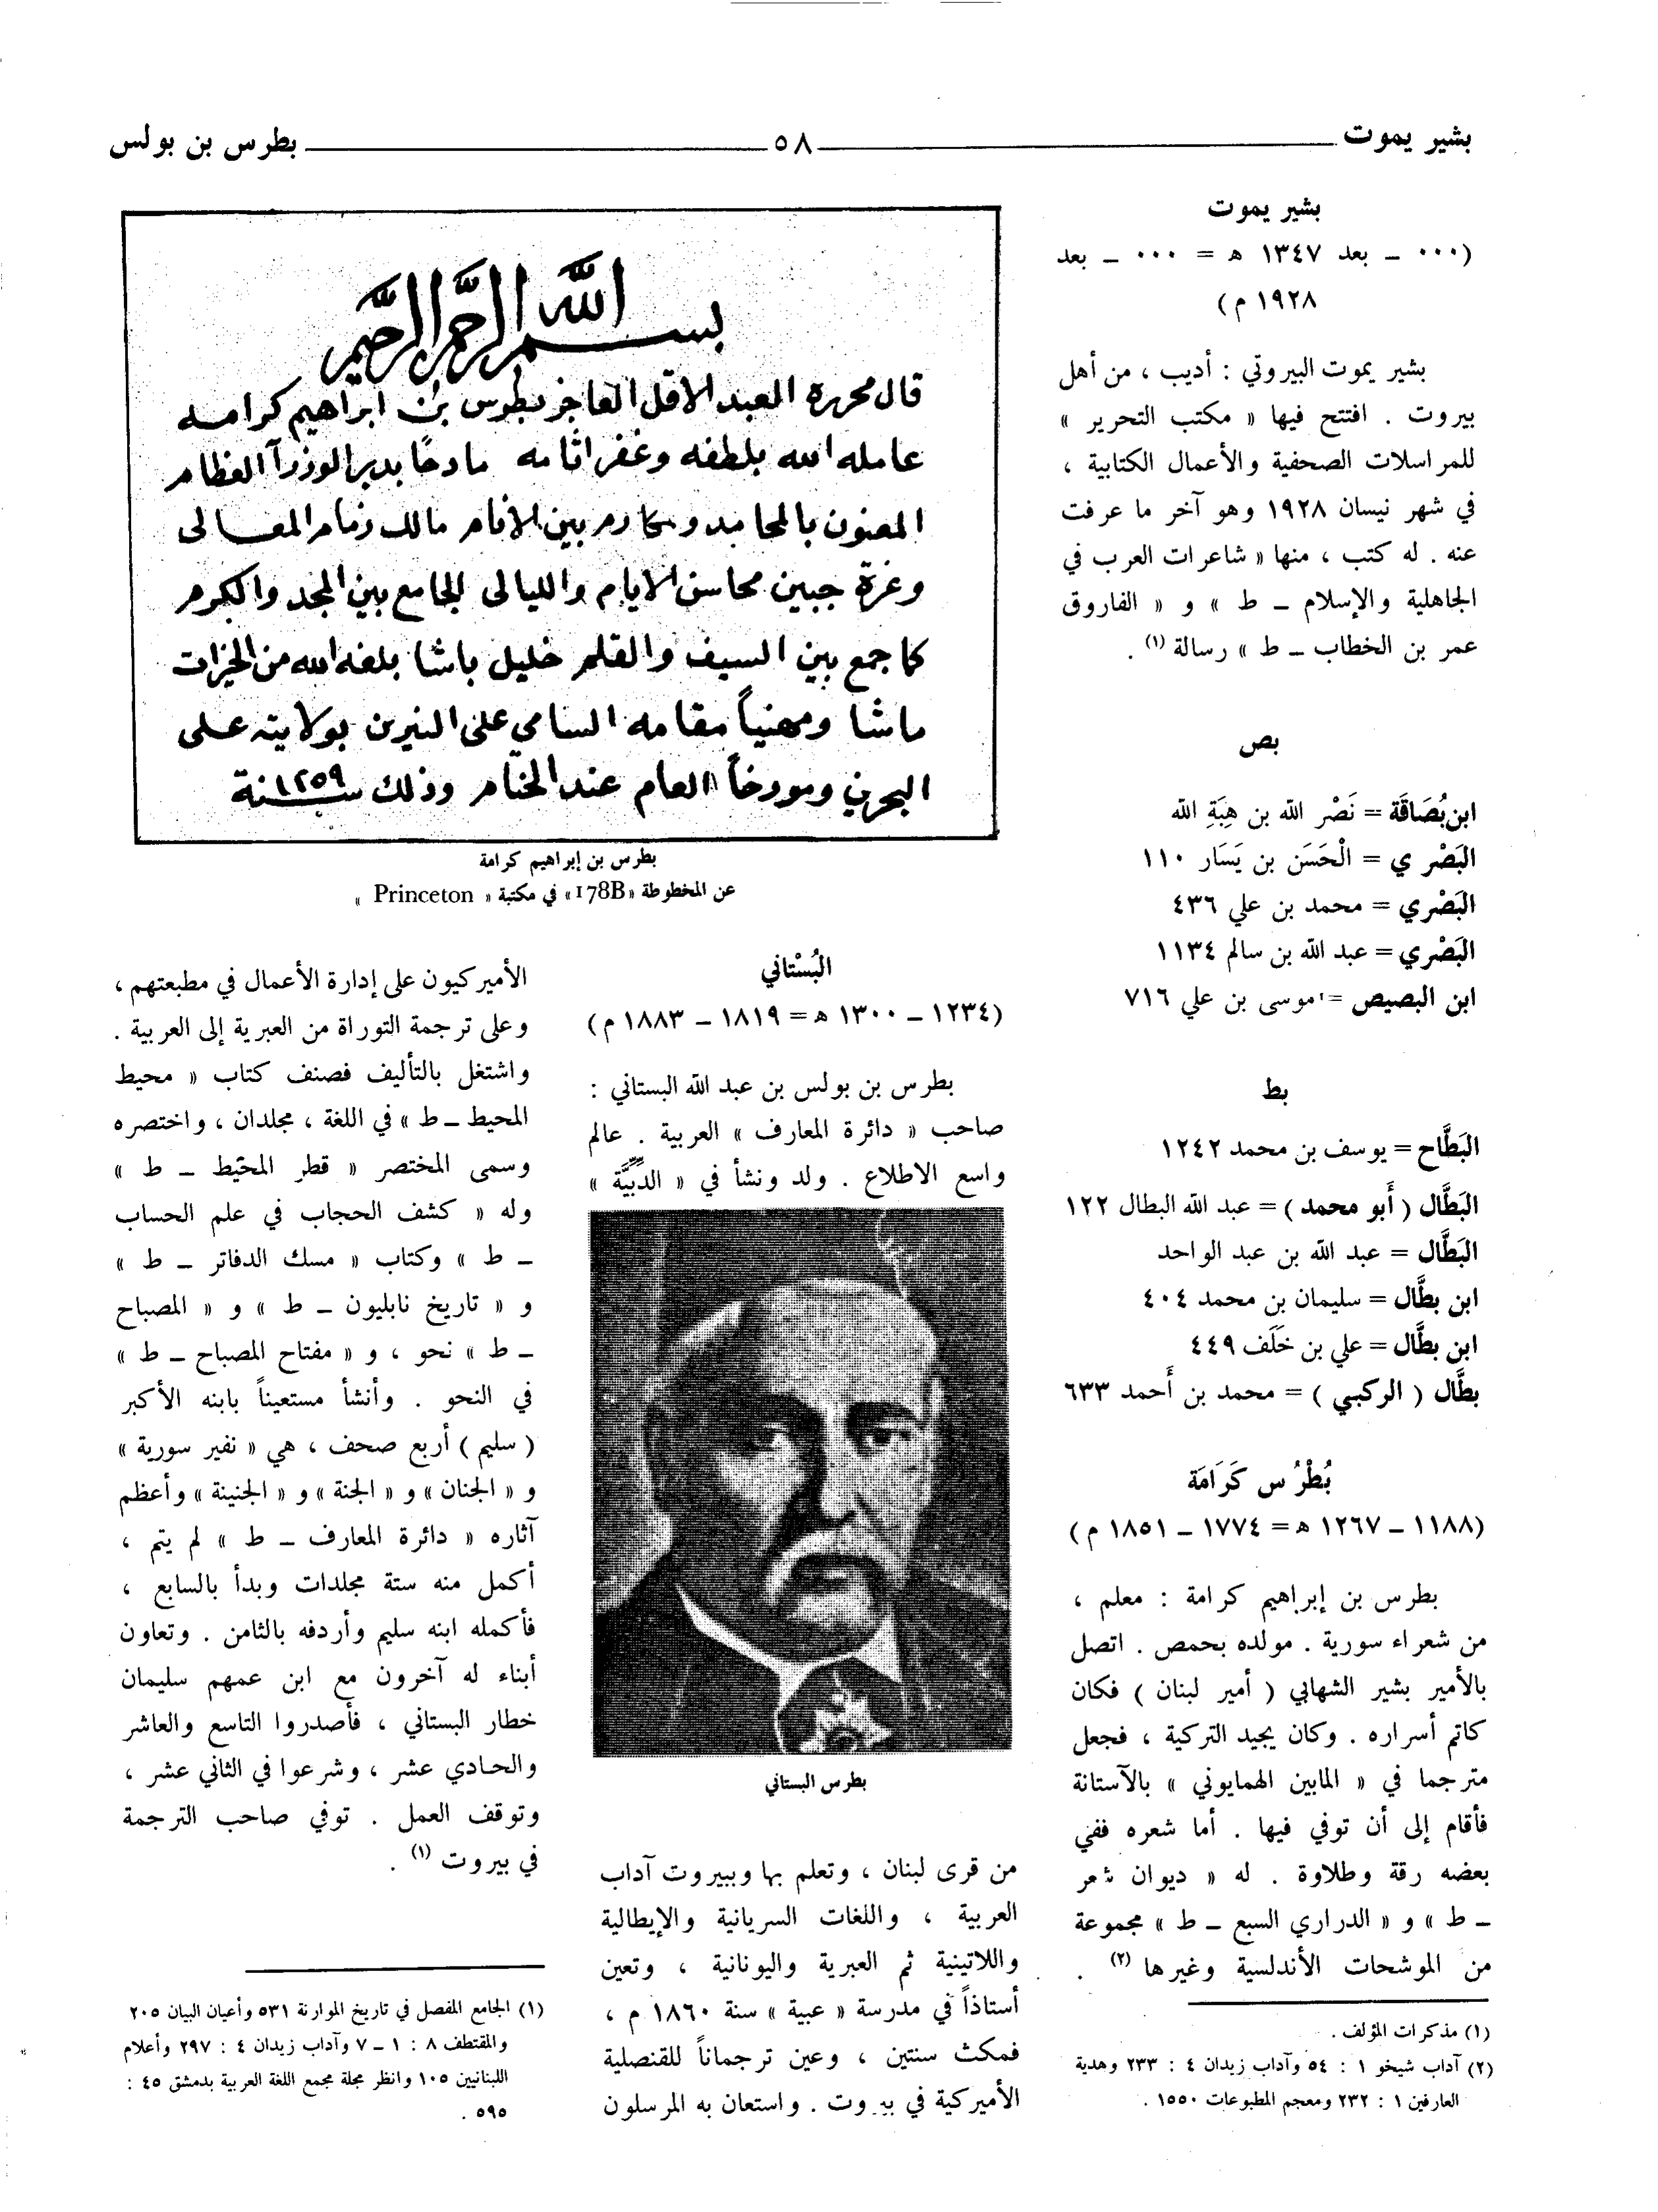 بشير يموت
٥٨
بطرس بن بولس
بشير يموت
(٠٠٠ ــ بعد ١٣٤٧ هـ = ٠٠٠ ــ بعد
١٩٢٨ م)
بشير يموت البيروتي : أديب ، من أهل
بيروت . افتتح فيها « مكتب التحرير »
للمراسلات الصحفية والأعمال الكتابية ،
في شهر نيسان ١٩٢٨ وهو آخر ما عرفت
عنه . له كتب ، منها « شاعرات العرب في
الجاهلية والإسلام ــ ط » و « الفاروق
عمر بن الخطاب ــ ط » رسالة (١) .
بص
ابن بُصَاقَة = نَصْر الله بن هِبَةِ الله
البَصْري = الْحَسَن بن يَسَار ١١٠
البَصْري = محمد بن علي ٤٣٦
البَصْري = عبد الله بن سالم ١١٣٤
ابن البصيص = موسى بن علي ٧١٦
بط
البَطَّاح = يوسف بن محمد ١٢٤٢
البَطَّال ( أَبو محمد ) = عبد الله البطال ١٢٢
البَطَّال = عبد الله بن عبد الواحد
ابن بطَّال = سليمان بن محمد ٤٠٤
ابن بطَّال = علي بن خَلَف ٤٤٩
بطَّال ( الركبي ) = محمد بن أَحمد ٦٣٣
بُطْرُس كَرَامَة
(١١٨٨ ــ ١٢٦٧ هـ = ١٧٧٤ ــ ١٨٥١ م)
بطرس بن إبراهيم كرامة : معلم ،
من شعراء سورية . مولده بحمص . اتصل
بالأمير بشير الشهابي ( أمير لبنان ) فكان
كاتم أسراره . وكان يجيد التركية ، فجعل
مترجما في « المابين الهمايوني » بالآستانة
فأقام إلى أن توفي فيها . أما شعره ففي
بعضه رقة وطلاوة . له « ديوان شعر
ــ ط » و « الدراري السبع ــ ط » مجموعة
من الموشحات الأندلسية وغيرها (٢) .
(١) مذكرات المؤلف .
(٢) آداب شيخو ١ : ٥٤ وآداب زيدان ٤ : ٢٣٣ وهدية
العارفين ١ : ٢٣٢ ومعجم المطبوعات ١٥٥٠ .
بسم الله الرحمن الرحيم
قال محرره العبد الاقل العاجز بطرس بن ابراهيم كرامه
عامله الله بلطفه وغفر اثامه مادحًا بدر الوزرآ العظام
المعنون بالمحامد ومكارم بين الانام مالك زمام المعالى
وغرة جبين محاسن الايام والليالى الجامع بين المجد والكرم
كما جمع بين السيف والقلم خليل باشا بلغه الله من الخيرات
ماشا ومهنياً مقامه السامي على النيرين بولايته على
البحرين ومورخاً العام عند الختام وذلك سنة ١٢٥٩
بطرس بن إبراهيم كرامة
عن المخطوطة «178B» في مكتبة « Princeton »
البُسْتاني
(١٢٣٤ ــ ١٣٠٠ هـ = ١٨١٩ ــ ١٨٨٣ م)
بطرس بن بولس بن عبد الله البستاني :
صاحب « دائرة المعارف » العربية . عالم
واسع الاطلاع . ولد ونشأ في « الدِّبِّيَّة »
بطرس البستاني
من قرى لبنان ، وتعلم بها وببيروت آداب
العربية ، واللغات السريانية والإيطالية
واللاتينية ثم العبرية واليونانية ، وتعين
أستاذاً في مدرسة « عبية » سنة ١٨٦٠ م ،
فمكث سنتين ، وعين ترجماناً للقنصلية
الأميركية في بيروت . واستعان به المرسلون
الأميركيون على إدارة الأعمال في مطبعتهم ،
وعلى ترجمة التوراة من العبرية إلى العربية .
واشتغل بالتأليف فصنف كتاب « محيط
المحيط ــ ط » في اللغة ، مجلدان ، واختصره
وسمى المختصر « قطر المحيط ــ ط »
وله « كشف الحجاب في علم الحساب
ــ ط » وكتاب « مسك الدفاتر ــ ط »
و « تاريخ نابليون ــ ط » و « المصباح
ــ ط » نحو ، و « مفتاح المصباح ــ ط »
في النحو . وأنشأ مستعيناً بابنه الأكبر
( سليم ) أربع صحف ، هي « نفير سورية »
و « الجنان » و « الجنة » و « الجنينة » وأعظم
آثاره « دائرة المعارف ــ ط » لم يتم ،
أكمل منه ستة مجلدات وبدأ بالسابع ،
فأكمله ابنه سليم وأردفه بالثامن . وتعاون
أبناء له آخرون مع ابن عمهم سليمان
خطار البستاني ، فأصدروا التاسع والعاشر
والحادي عشر ، وشرعوا في الثاني عشر ،
وتوقف العمل . توفي صاحب الترجمة
في بيروت (١) .
(١) الجامع المفصل في تاريخ الموارنة ٥٣١ وأعيان البيان ٢٠٥
والمقتطف ٨ : ١ ــ ٧ وآداب زيدان ٤ : ٢٩٧ وأعلام
اللبنانيين ١٠٥ وانظر مجلة مجمع اللغة العربية بدمشق ٤٥ :
٥٩٥ .